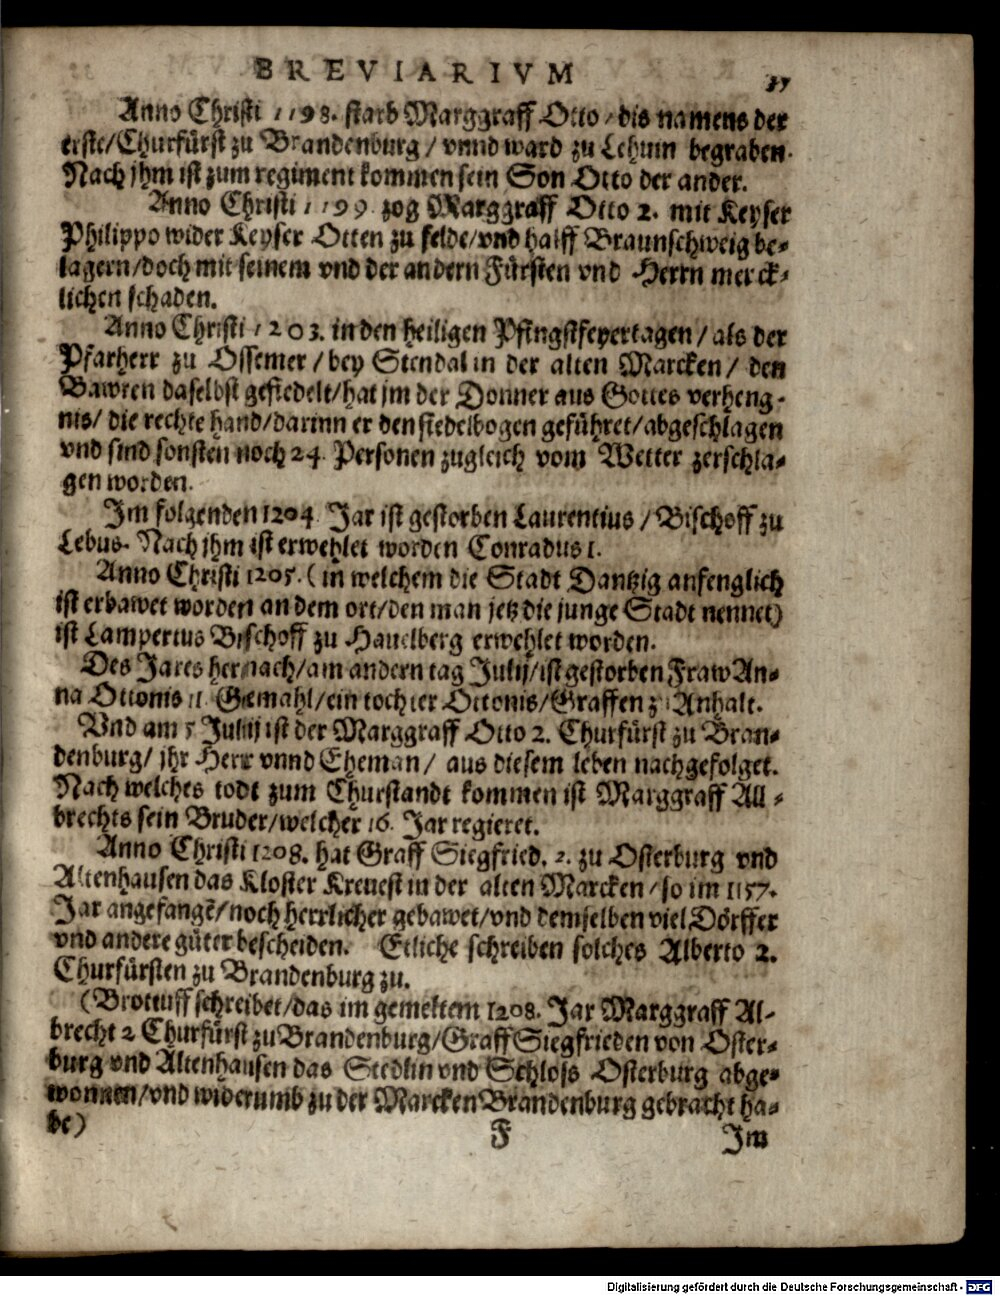 BREVIARIVM 37
Anno Christi 1198. starb Marggraff Otto / dis namens der
erste/Churfürst zu Brandenburg / vnnd ward zu Lehnin begraben.
Nach jhm ist zum regiment kommen sein Son Otto der ander.
Anno Christi 1199 zog Marggraff Otto 2. mit Keyser
Philippo wider Keyser Otten zu felde/vnd halff Braunschweig be-
lagern/doch mit seinem vnd der andern Fürsten vnd Herrn merck-
lichen schaden.
Anno Christi 1203. in den heiligen Pfingstfeyertagen / als der
Pfarherr zu Ossemer / bey Stendal in der alten Marcken / den
Bawren daselbst gefiedelt/hat jm der Donner aus Gottes verheng-
nis/ die rechte hand/darinn er den fiedelbogen geführet/abgeschlagen
vnd sind sonsten noch 24. Personen zugleich vom Wetter zerschla-
gen worden.
Im folgenden 1204. Jar ist gestorben Laurentius / Bischoff zu
Lebus. Nach jhm ist erwehlet worden Conradus 1.
Anno Christi 1205. ( in welchem die Stadt Dantzig anfenglich
ist erbawet worden an dem ort/den man jetz die junge Stadt nennet)
ist Lampertus Bischoff zu Hauelberg erwehlet worden.
Des Jares hernach/am andern tag Julij/ist gestorben Fraw An-
na Ottonis 11. Gemahl/ein tochter Ottonis/Graffen zu Anhalt.
Vnd am 5 Julij ist der Marggraff Otto 2. Churfürst zu Bran-
denburg/ jhr Herr vnnd Eheman / aus diesem leben nachgefolget.
Nach welches todt zum Churstandt kommen ist Marggraff All-
brechts sein Bruder/welcher 16. Jar regieret.
Anno Christi 1208. hat Graff Siegfried. 2. zu Osterburg vnd
Altenhausen das Kloster Kreuest in der alten Marcken / so im 1157.
Jar angefangē/noch herrlicher gebawet/vnd demselben viel Dörffer
vnd andere güter bescheiden. Etliche schreiben solches Alberto 2.
Churfürsten zu Brandenburg zu.
(Brotuff schreibet/das im gemeltem 1208. Jar Marggraff Al-
brecht 2 Churfürst zu Brandenburg/Graff Siegfrieden von Oster-
burg vnd Altenhausen das Stedlin vnd Schloss Osterburg abge-
wonnen/vnd widerumb zu der Marcken Brandenburg gebracht ha-
be)
F Im
Digitalisierung gefördert durch die Deutsche Forschungsgemeinschaft - DFG